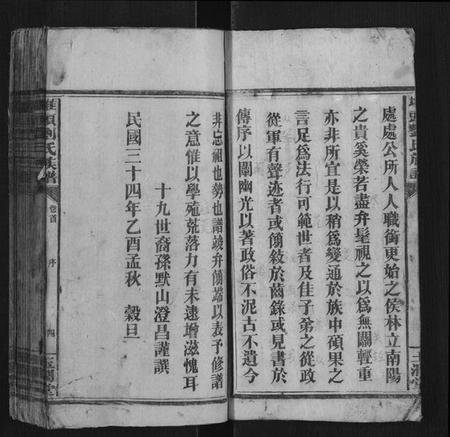 處處公所人人職銜更始之侯林立南陽
之貴奚榮若盡弁髦視之以為無關輕重
亦非所宜是以稍為變通於族中碩果之
言足為法行可範世者及佳子弟之從政
從軍有聲迹者或備敘於齒錄或見書於
傳序以闡幽光以著政俗不泥古不遺今
非忘祖也勢也譜竣弁備端以表予修譜
之意惟以學殖荒落力有未逮增滋愧耳
十九世裔孫默山澄昌謹撰
民國三十四年乙酉孟秋 穀旦
劉氏族譜
卷首
序
四